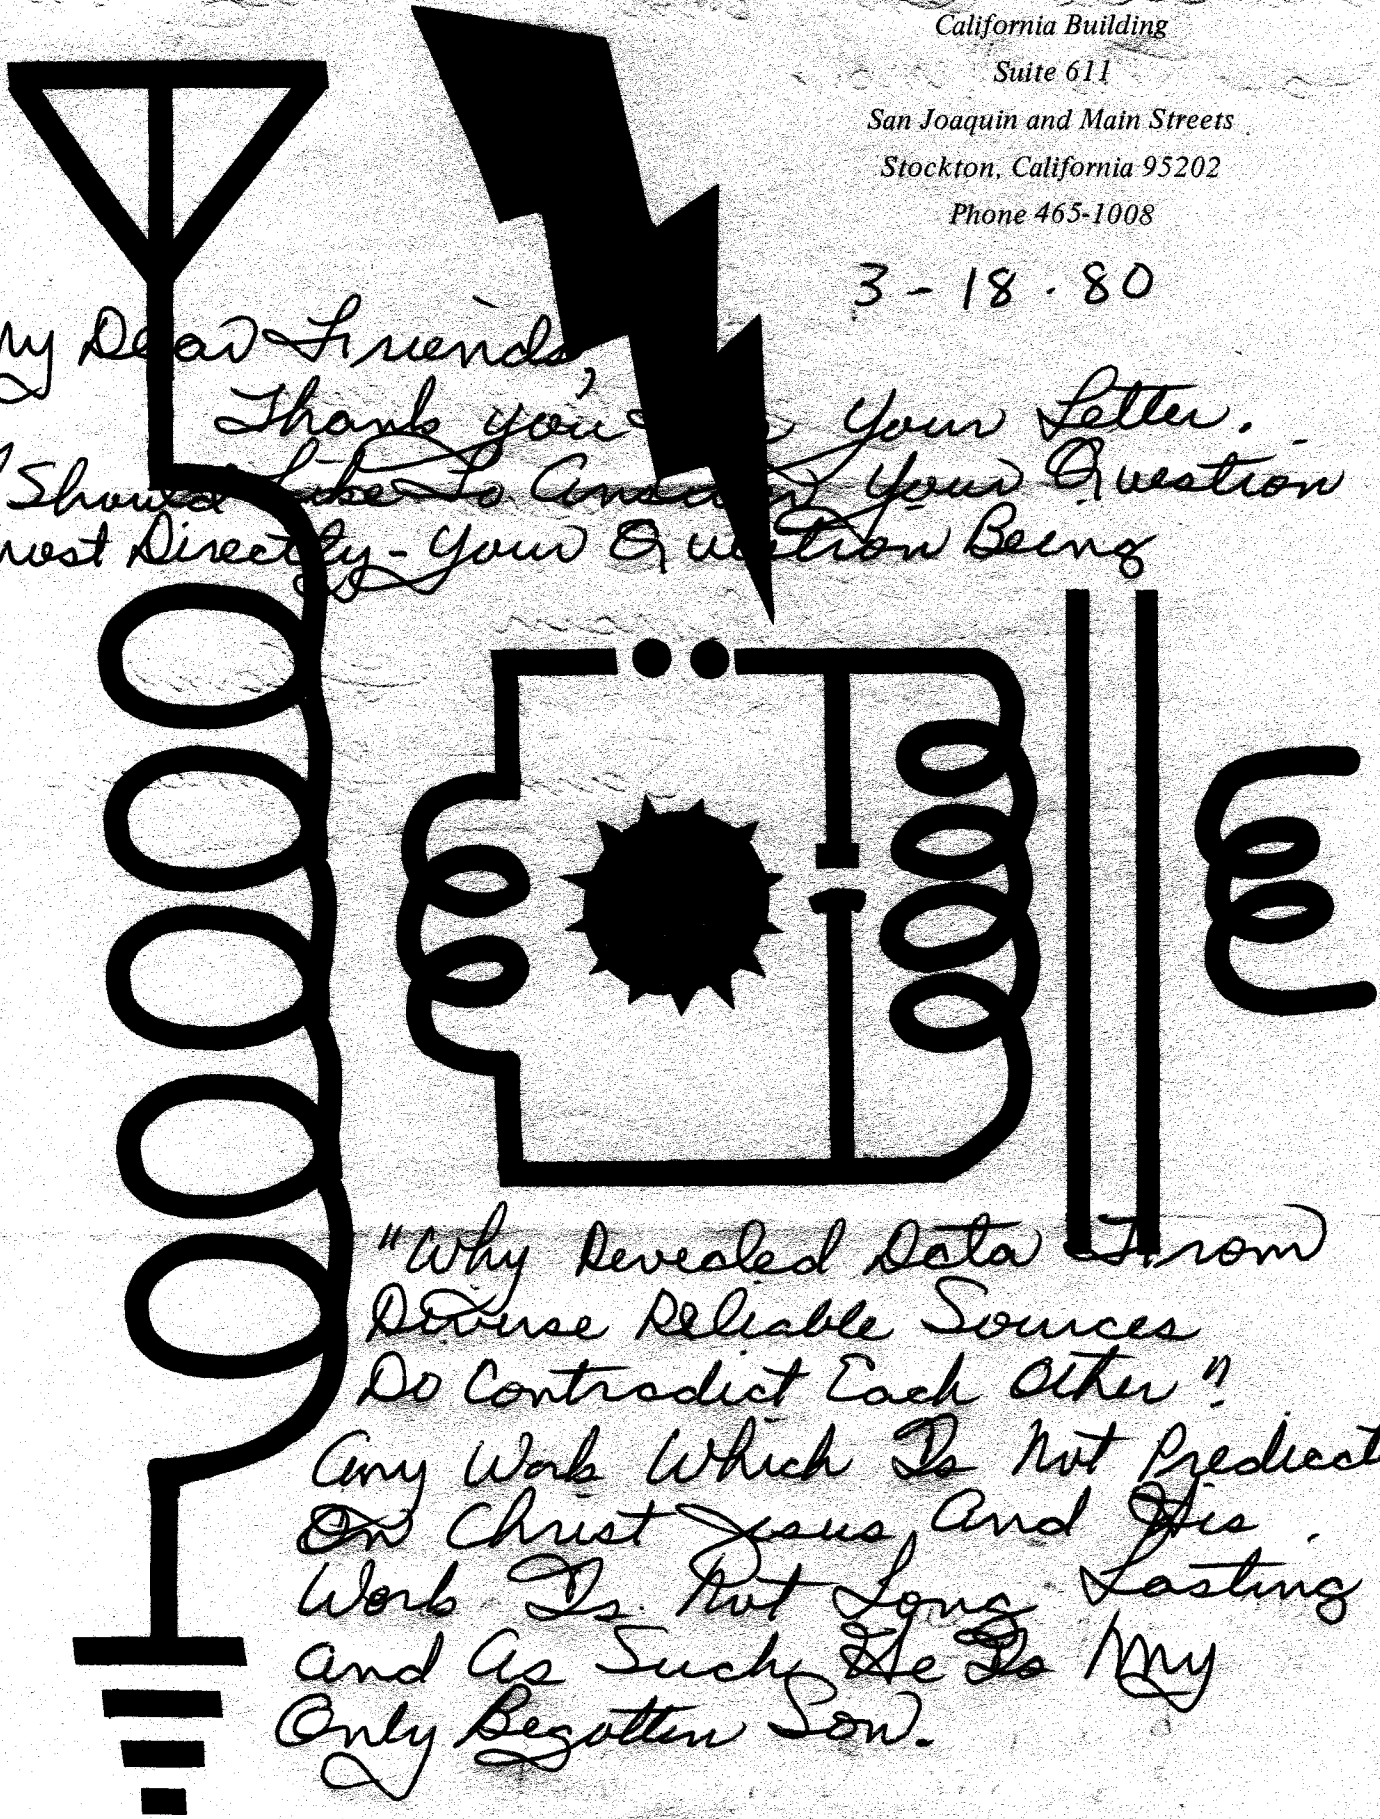 California Building
Suite 611
San Joaquin and Main Streets
Stockton, California 95202
Phone 465-1008
3-18-80
My Dear Friends,
Thank you your Letter.
I Should Like To Answer your Question
most Directly - your Question Being
"Why Revealed Data From
Diverse Reliable Sources
Do Contradict Each Other"?
Any Work Which Is Not Predicat
On Christ Jesus, And His
Work Is Not Long Lasting
and As Such, He Is My
Only Begotten Son.